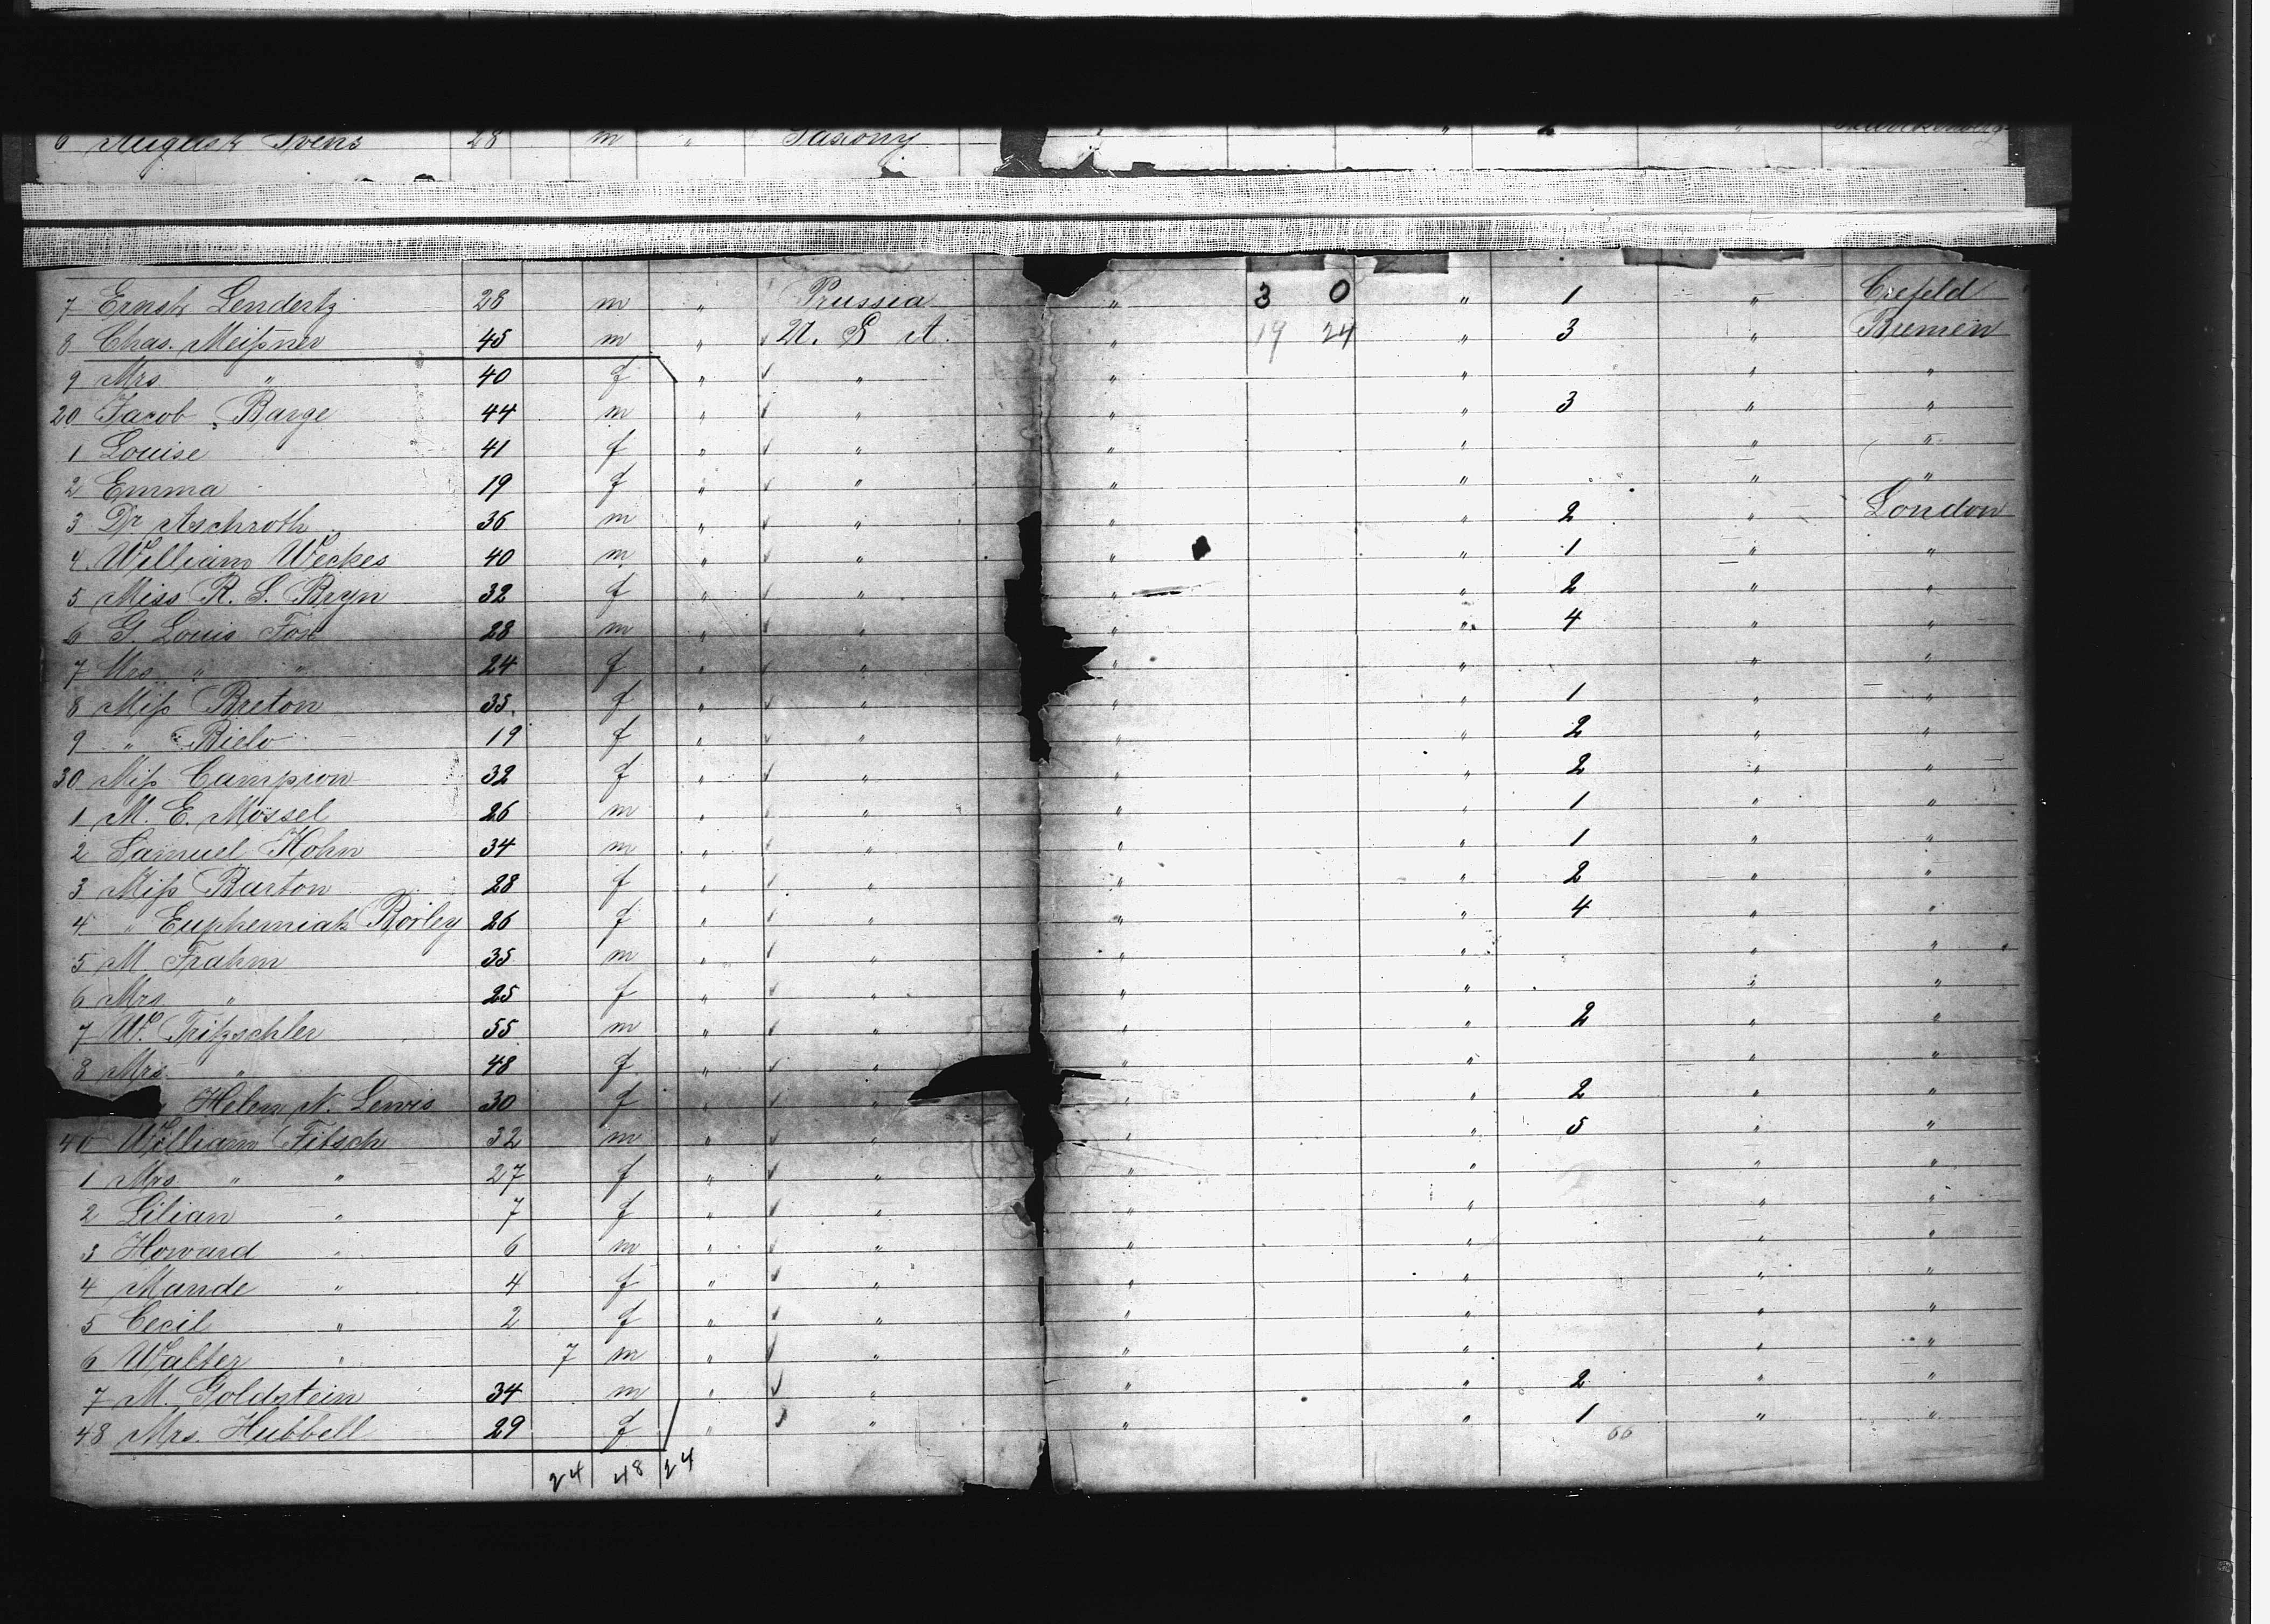 6 August Ivens 28 m " Saxony " 2 "
7 Ernst Lendertz 28 m " Prussia " 3 0 " 1 " Crefeld
8 Chas. Meißner 45 m " U. S. A. " 19 24 " 3 " Bremen
9 Mrs " 40 f " " " " "
20 Jacob Barge 44 m " " " " 3 " "
1 Louise 41 f " " " " " "
2 Emma 19 f " " " " " "
3 Dr Aschroth 36 m " " " " 2 " London
4 William Weckes 40 m " " " " 1 " "
5 Miss R. S. Bryn 32 f " " " " 2 " "
6 G. Louis Fox 28 m " " " " 4 " "
7 Mrs " " 24 f " " " " " "
8 Miß Breton 35 f " " " " 1 " "
9 " Bielo 19 f " " " " 2 " "
30 Miß Campion 32 f " " " " 2 " "
1 M. E. Mossel 26 m " " " " 1 " "
2 Samuel Hohn 34 m " " " " 1 " "
3 Miß Barton 28 f " " " " 2 " "
4 " Euphemiah Rorley 26 f " " " " 4 " "
5 M Frahm 35 m " " " " " "
6 Mrs " 25 f " " " " " "
7 W. Fritzschler 55 m " " " " 2 " "
8 Mrs " 48 f " " " " " "
Helen N. Lewis 30 f " " " " 2 " "
40 William Fitsch 32 m " " " " 5 " "
1 Mrs " " 27 f " " " " " "
2 Lilian " 7 f " " " " " "
3 Howard " 6 m " " " " " "
4 Maude " 4 f " " " " " "
5 Cecil " 2 f " " " " " "
6 Walter " 7 m " " " " " "
7 M. Goldstein 34 m " " " " 2 " "
48 Mrs. Hubbell 29 f " " " " 1 " "
66
24 48 24